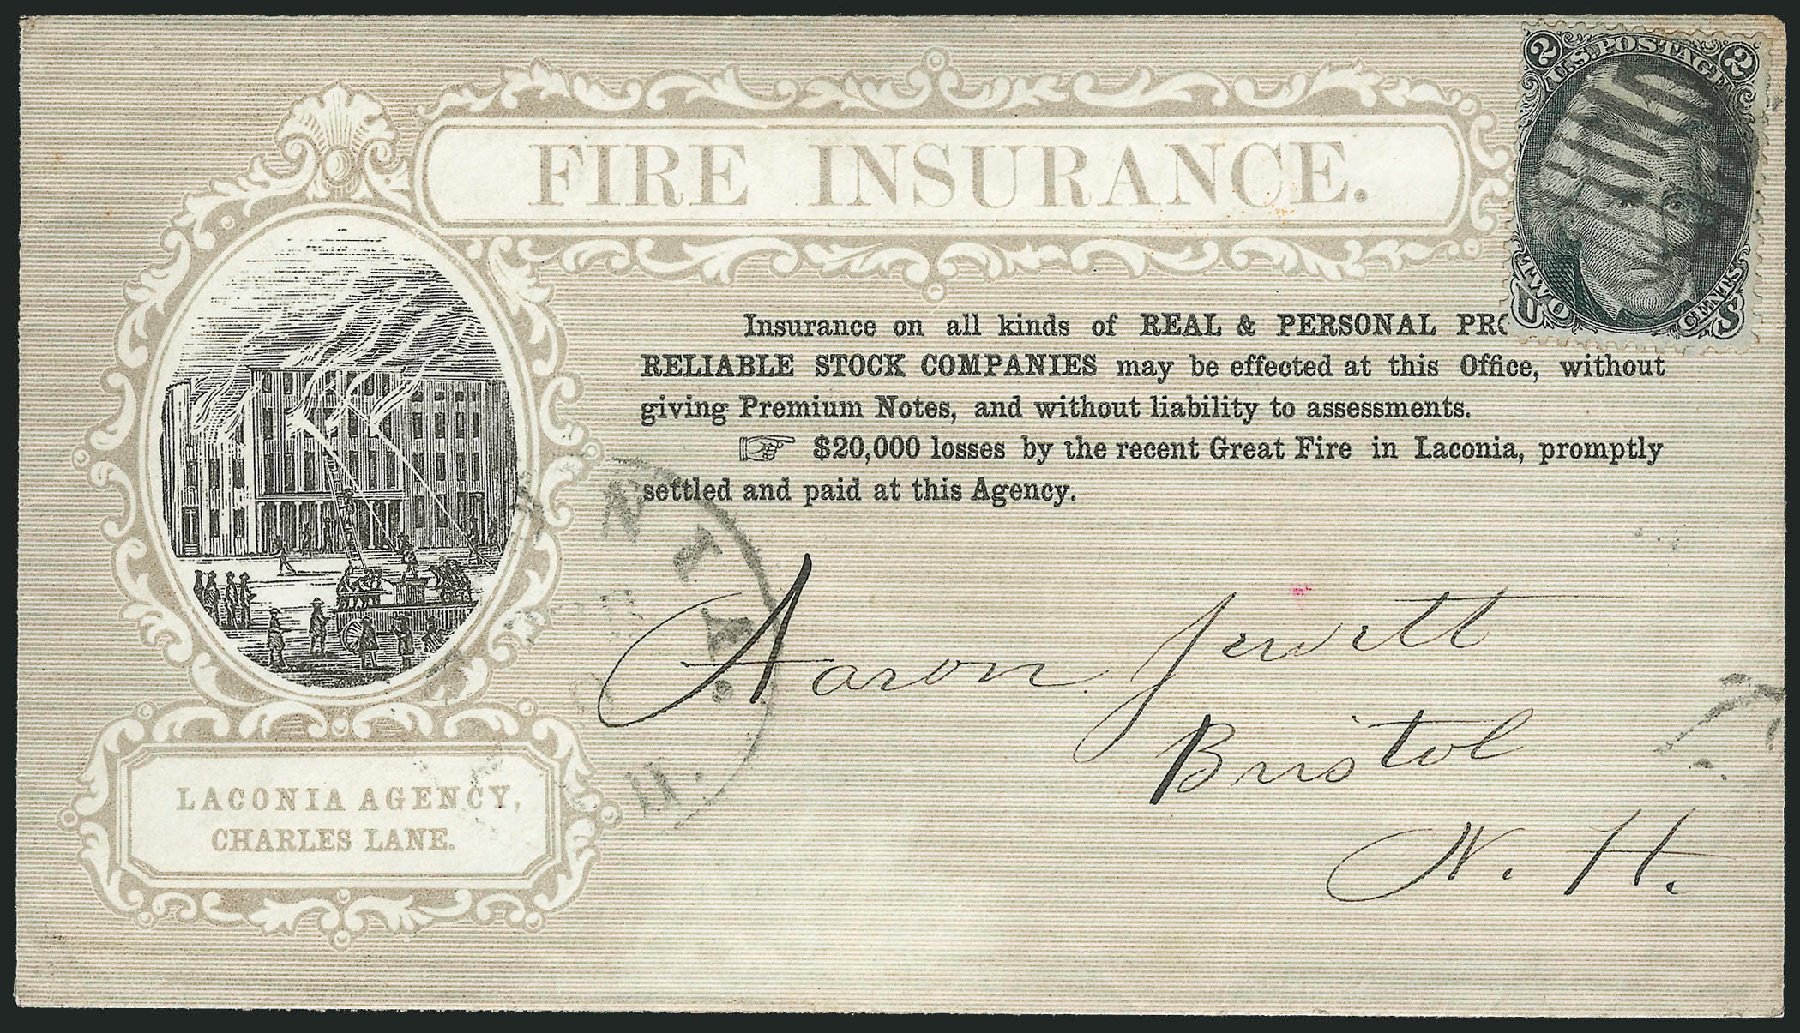 FIRE INSURANCE.
2 U.S. POSTAGE 2
TWO CENTS
U S
Insurance on all kinds of REAL & PERSONAL
RELIABLE STOCK COMPANIES may be effected at this Office, without
giving Premium Notes, and without liability to assessments.
☞ $20,000 losses by the recent Great Fire in Laconia, promptly
settled and paid at this Agency.
Aaron Jewett
Bristol
N. H.
LACONIA AGENCY,
CHARLES LANE.